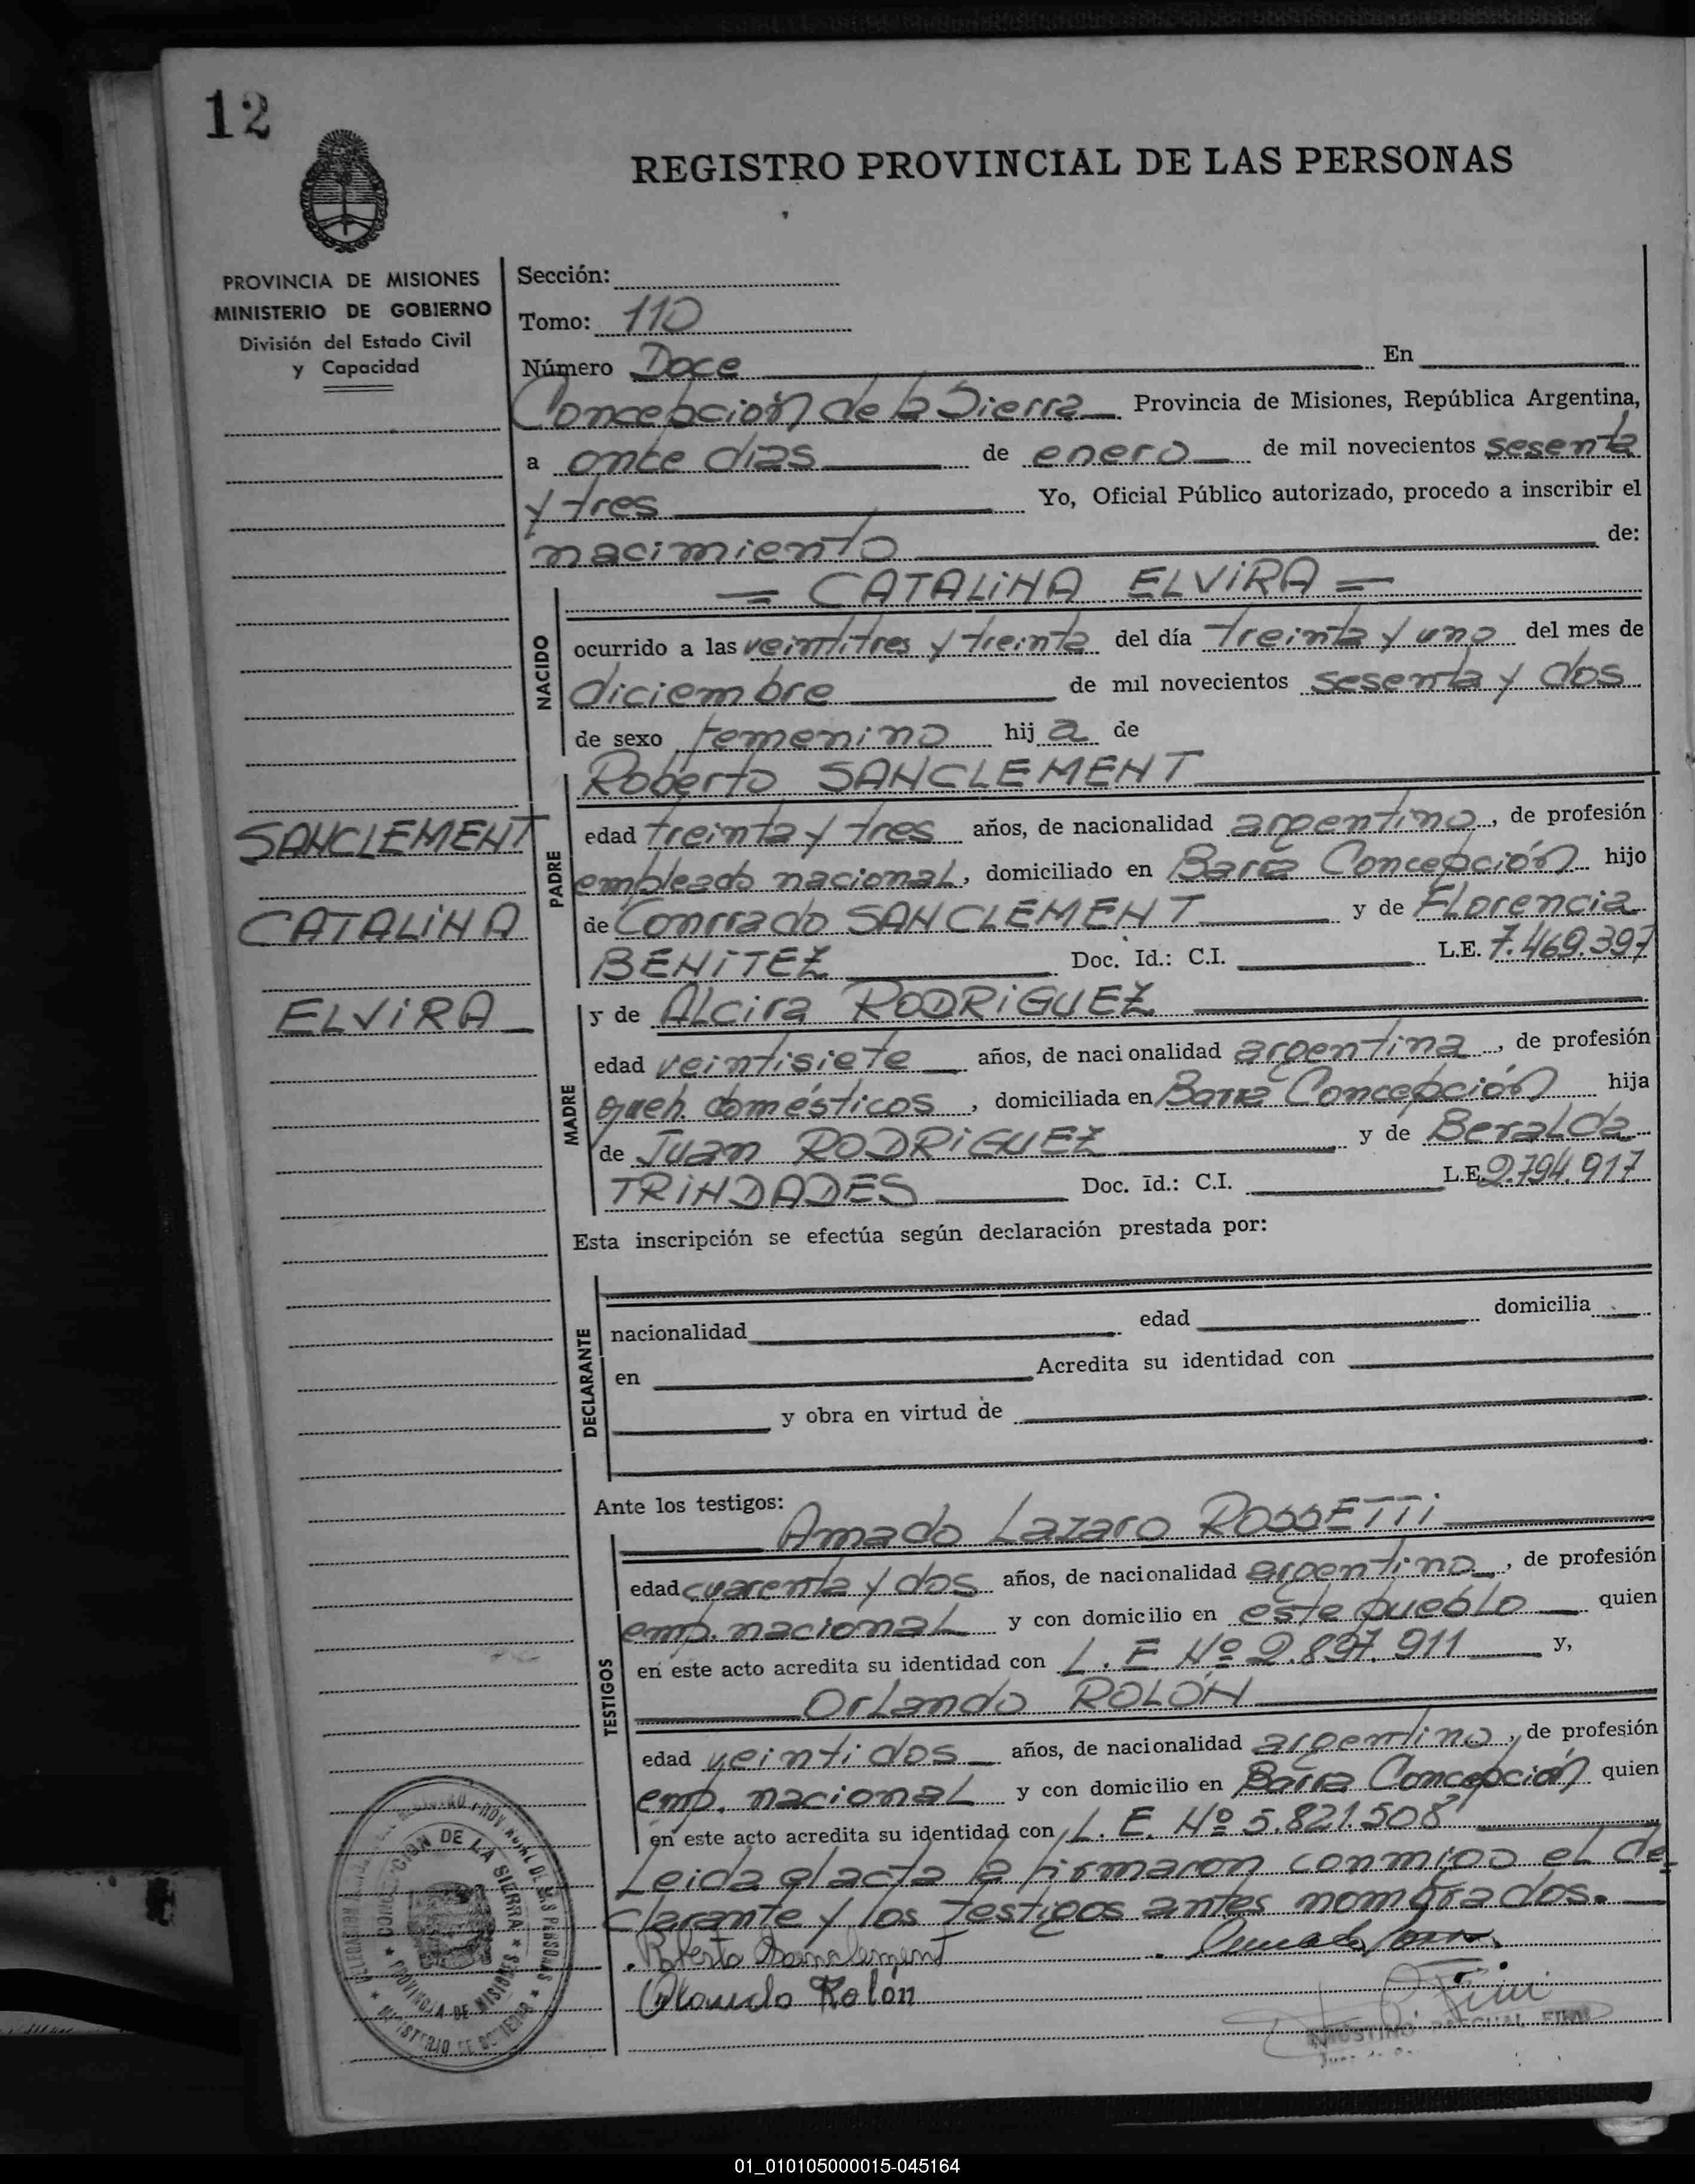 12
REGISTRO PROVINCIAL DE LAS PERSONAS
PROVINCIA DE MISIONES
MINISTERIO DE GOBIERNO
División del Estado Civil
y Capacidad
SANCLEMENT
CATALINA
ELVIRA
Sección:
Tomo: 110
Número Doce En
Concepción de la Sierra Provincia de Misiones, República Argentina,
a once días de enero de mil novecientos sesenta
y tres Yo, Oficial Público autorizado, procedo a inscribir el
nacimiento de:
= CATALINA ELVIRA =
NACIDO
ocurrido a las veintitres y treinta del día treinta y uno del mes de
diciembre de mil novecientos sesenta y dos
de sexo femenino hij a de
Roberto SANCLEMENT
PADRE
edad treinta y tres años, de nacionalidad argentino, de profesión
empleado nacional, domiciliado en Barra Concepción hijo
de Conrrado SANCLEMENT y de Florencia
BENITEZ Doc. Id.: C.I. L.E. 7.469.397
MADRE
y de Alcira RODRIGUEZ
edad veintisiete años, de nacionalidad argentina, de profesión
queh. domésticos, domiciliada en Barra Concepción hija
de Juan RODRIGUEZ y de Beralda
TRINDADES Doc. Id.: C.I. L.E. 2.794.917
Esta inscripción se efectúa según declaración prestada por:
DECLARANTE
nacionalidad edad domicilia
en Acredita su identidad con
y obra en virtud de
Ante los testigos:
Amado Lazaro ROSSETTI
TESTIGOS
edad cuarenta y dos años, de nacionalidad argentino, de profesión
emp. nacional y con domicilio en este pueblo quien
en este acto acredita su identidad con L. E. Nº 2.897.911 y,
Orlando ROLÓN
edad veintidos años, de nacionalidad argentino, de profesión
emp. nacional y con domicilio en Barra Concepción quien
en este acto acredita su identidad con L. E. Nº 5.821.508
Leida el acta la firmaron conmigo el de-
clarante y los testigos antes nombrados.
Roberto Sanclement
Orlando Rolón
PASCUAL FINI
CONCEPCION DE LA SIERRA
PROVINCIA DE MISIONES
MINISTERIO DE GOBIERNO
01_010105000015-045164